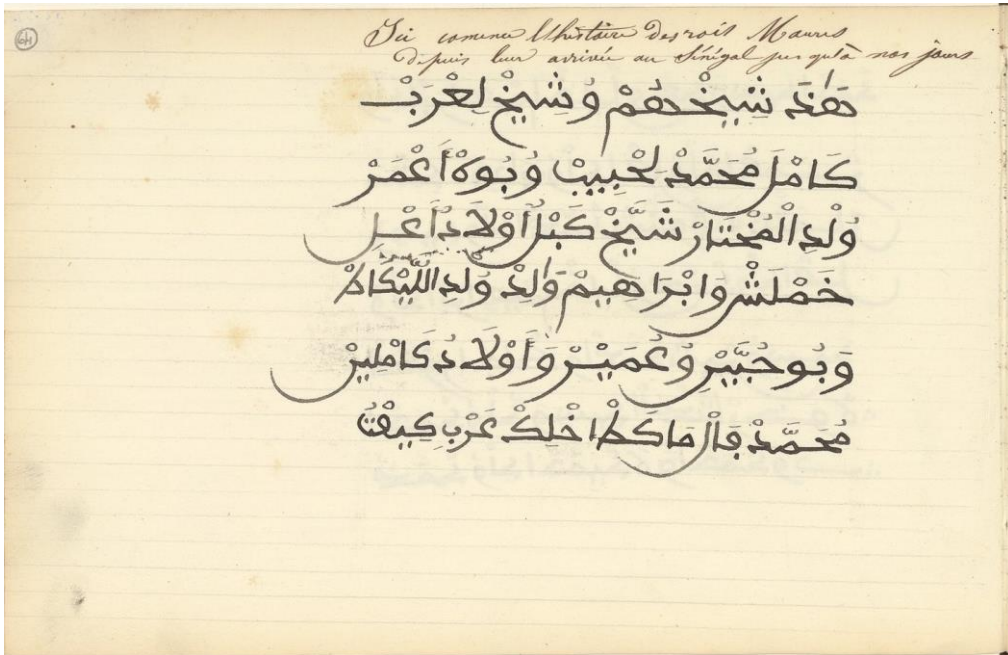 Ici comence l'histoire des rois Maures
depuis leur arrivée au Sénégal jusqu'à nos jours
شِيخْ وُشِيخْ لِعْرَبْ
كَامْلَ مُحَمَّدْ لِحْبِيبْ وُبُوهْ أَعْمَرْ
وُلْدِ الْمُخْتَارْ شَيَّخْ كَبْلُ أَوْلَادْ أَعْلِ
خَمْلَشْ وَابْرَاهِيمْ وَالِدْ وَلْدِ
وَبُو حُبَّيْنِ وُعُمَيْرْ وَأَوْلَادْ
مُحَمَّدْ فَالْ مَا كَطْ اخْلِكْ عَرْبِ كِيفْتُ